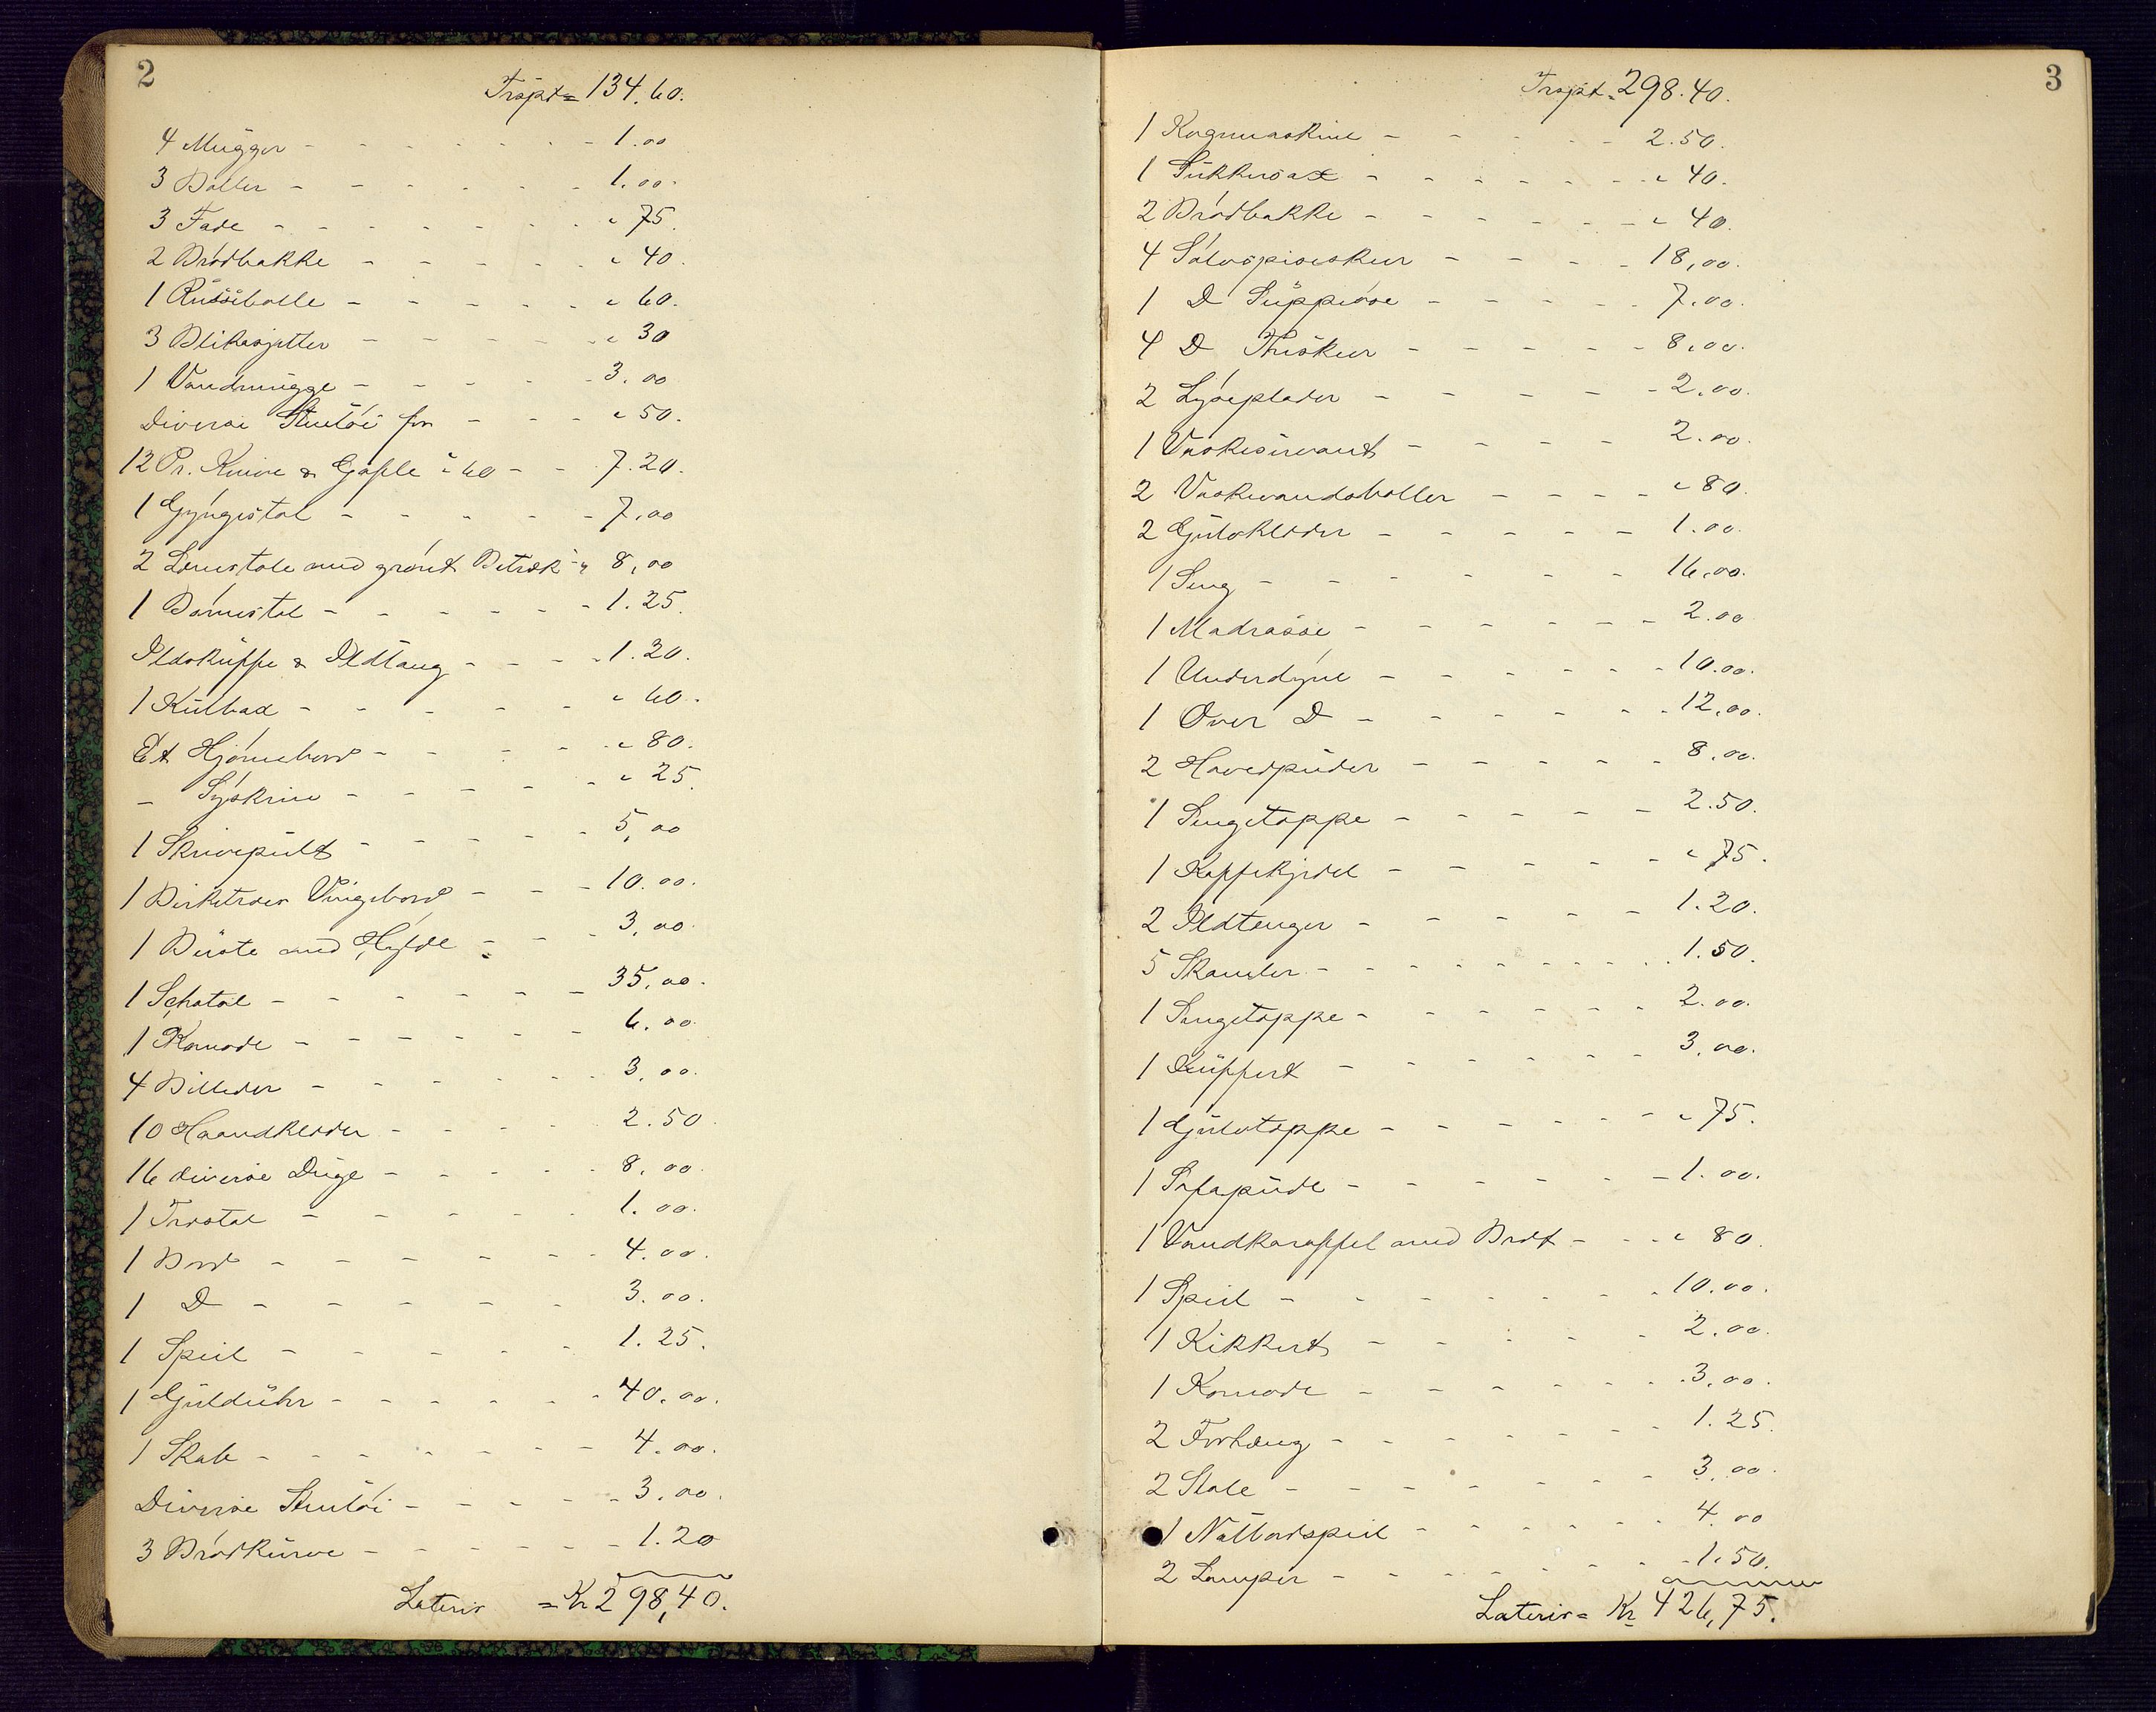 2
Trspt = 134.60.
4 Mugger - - - - - - 1.00
3 Boller - - - - - - 1.00.
3 Fade - - - - - - " 75.
2 Brödbakke - - - - - " 40.
1 Russebolle - - - - - " 60.
3 Blikasjetter - - - - - " 30
1 Vandmugge - - - - 3.00
Diverse Stentöi for - - - " 50.
12 Pr. Knive & Gafle " 60 - - 7.20.
1 Gyngestol - - - - - 7.00
2 Lænestole med grönt Betræk - " 8,00
1 Börnestol - - - - - - 1.25.
Ildskuffe & Ildtang - - - - 1.20.
1 Kulbax - - - - - " 60.
Et Hjörnebord - - - - - " 80.
- Syskrin - - - - - - " 25.
1 Skrivepult - - - - - 5,00
1 Birketræes Vingebord - - - 10.00.
1 Büste med Hylde - - - 3,00.
1 Schatol - - - - - - 35,00.
1 Komode - - - - - - 6.00.
4 Billeder - - - - - - 3,00.
10 Haandklæder - - - - - 2.50.
16 diverse Duge - - - - - 8.00.
1 Træstol - - - - - 1.00.
1 Bord - - - - - - - 4.00.
1 D - - - - - 3.00.
1 Speil - - - - - 1.25.
1 Gulduhr - - - - - - 40.00.
1 Skab - - - - - - - 4.00.
Diverse Stentöi - - - - - 3.00.
3 Brödkurve - - - - - - 1.20
Lateris = Kr 298,40.
3
Trspt. = 298.40.
1 Kogemaskine - - - - - 2.50.
1 Sukkersax - - - - - - - " 40.
2 Brödbakke - - - - - - " 40.
4 Sölvspiseskeer - - - - 18,00.
1 D Suppeöse - - - - - 7.00.
4 D Theskeer - - - - - 8.00.
2 Lyseplader - - - - - 2.00.
1 Vaskeservant - - - - 2.00.
2 Vaskevandsboller - - - - " 80.
2 Gulvklæder - - - - - 1.00.
1 Seng - - - - - - 16.00.
1 Madrasse - - - - - - 2.00
1 Underdyne - - - - - - 10.00.
1 Over D - - - - - - 12,00.
2 Hovedpuder - - - - - 8.00.
1 Sengetæppe - - - - - 2.50.
1 Kaffekjedel - - - - - " 75.
2 Ildtænger - - - - - 1.20.
5 Skamler - - - - - - - 1.50.
1 Sengetæppe - - - - - - 2.00.
1 Kuffert - - - - - - 3,00.
1 Gulvtæppe - - - - - - " 75.
1 Sofapude - - - - - - 1.00.
1 Vandkaraffel med Bræt - - - " 80.
1 Speil - - - - - - 10.00.
1 Kikkert - - - - - 2.00.
1 Komode - - - - - - 3,00.
2 Forhæng - - - - - - 1.25.
2 Stole - - - - - - 3,00.
1 Natbordspeil - - - - - - 4.00
2 Lamper - - - - - - 1.50.
Lateris = Kr 426,75.